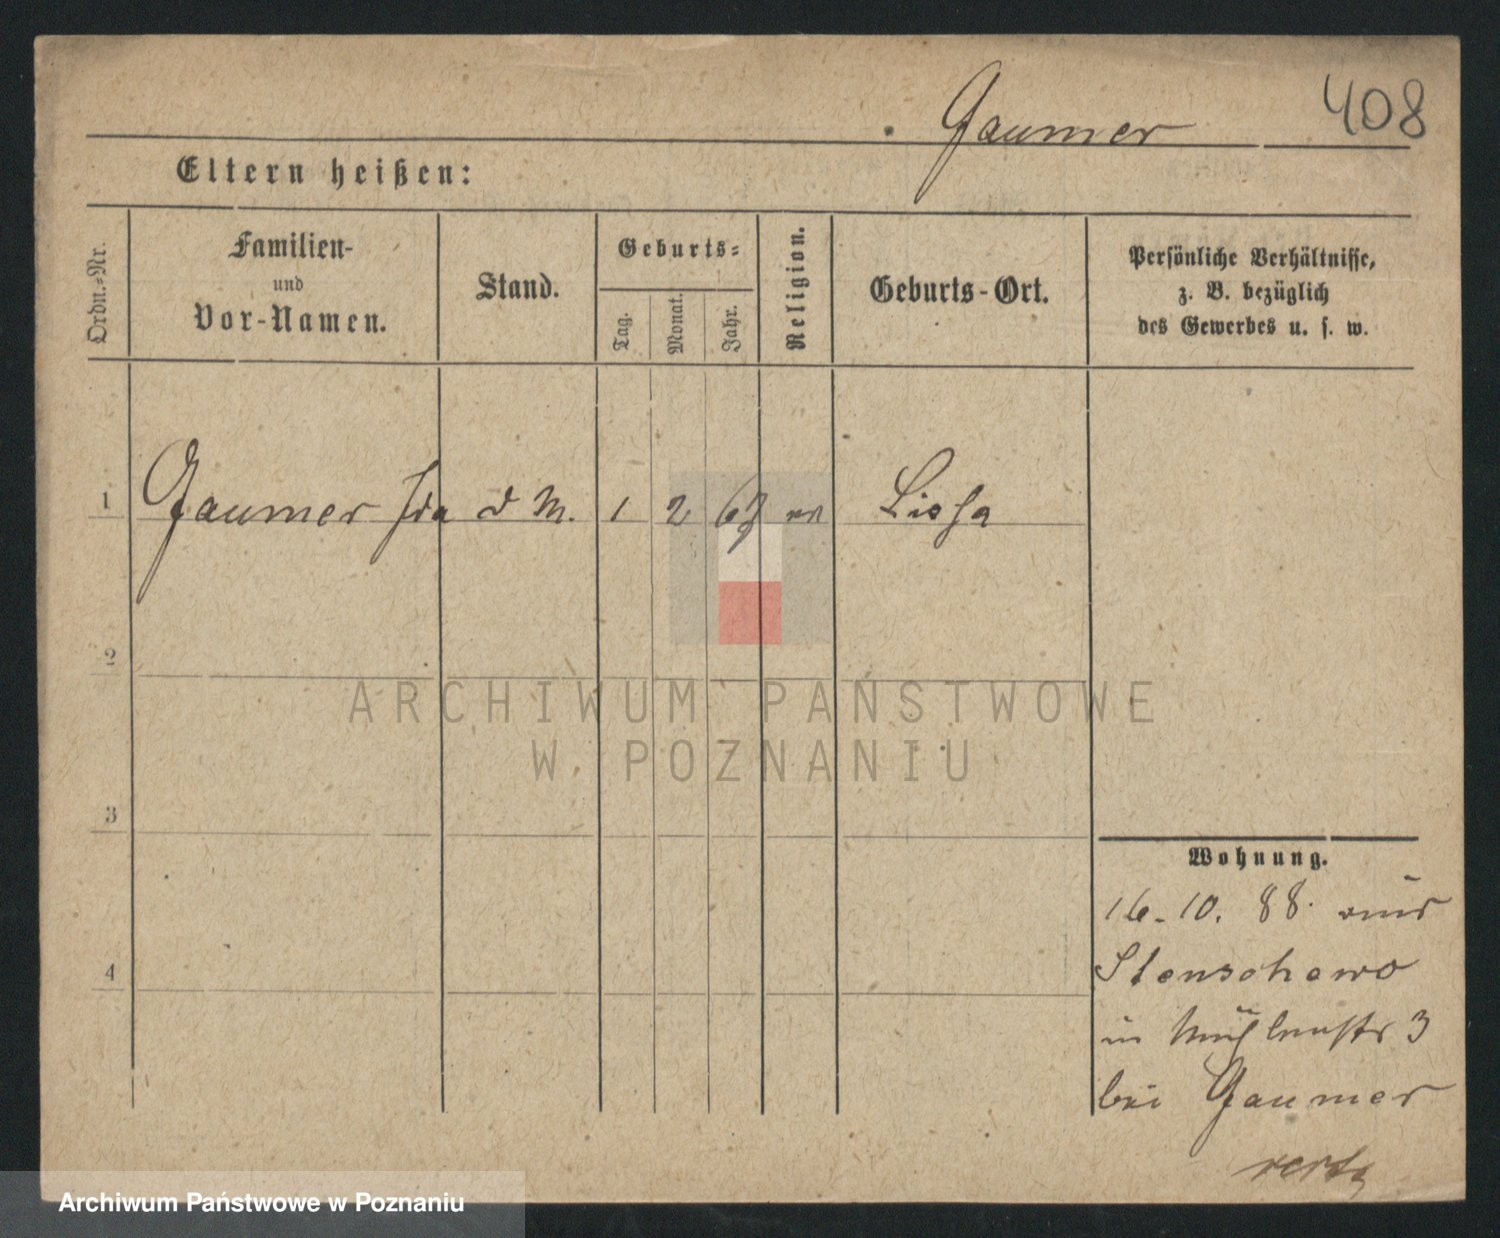 Gaumer 408
Eltern heißen:
Ordn.-Nr.
Familien-
und
Vor-Namen.
Stand.
Geburts-
Tag.
Monat.
Jahr.
Religion.
Geburts-Ort.
Persönliche Verhältnisse,
z. B. bezüglich
des Gewerbes u. s. w.
1 Gaumer Ida d M. 1 2 Lissa
2
3
4
Wohnung.
16.10. 88.
Stenschewo
in Mühlenstr 3
bei Gaumer
ARCHIWUM PAŃSTWOWE
W POZNANIU
Archiwum Państwowe w Poznaniu